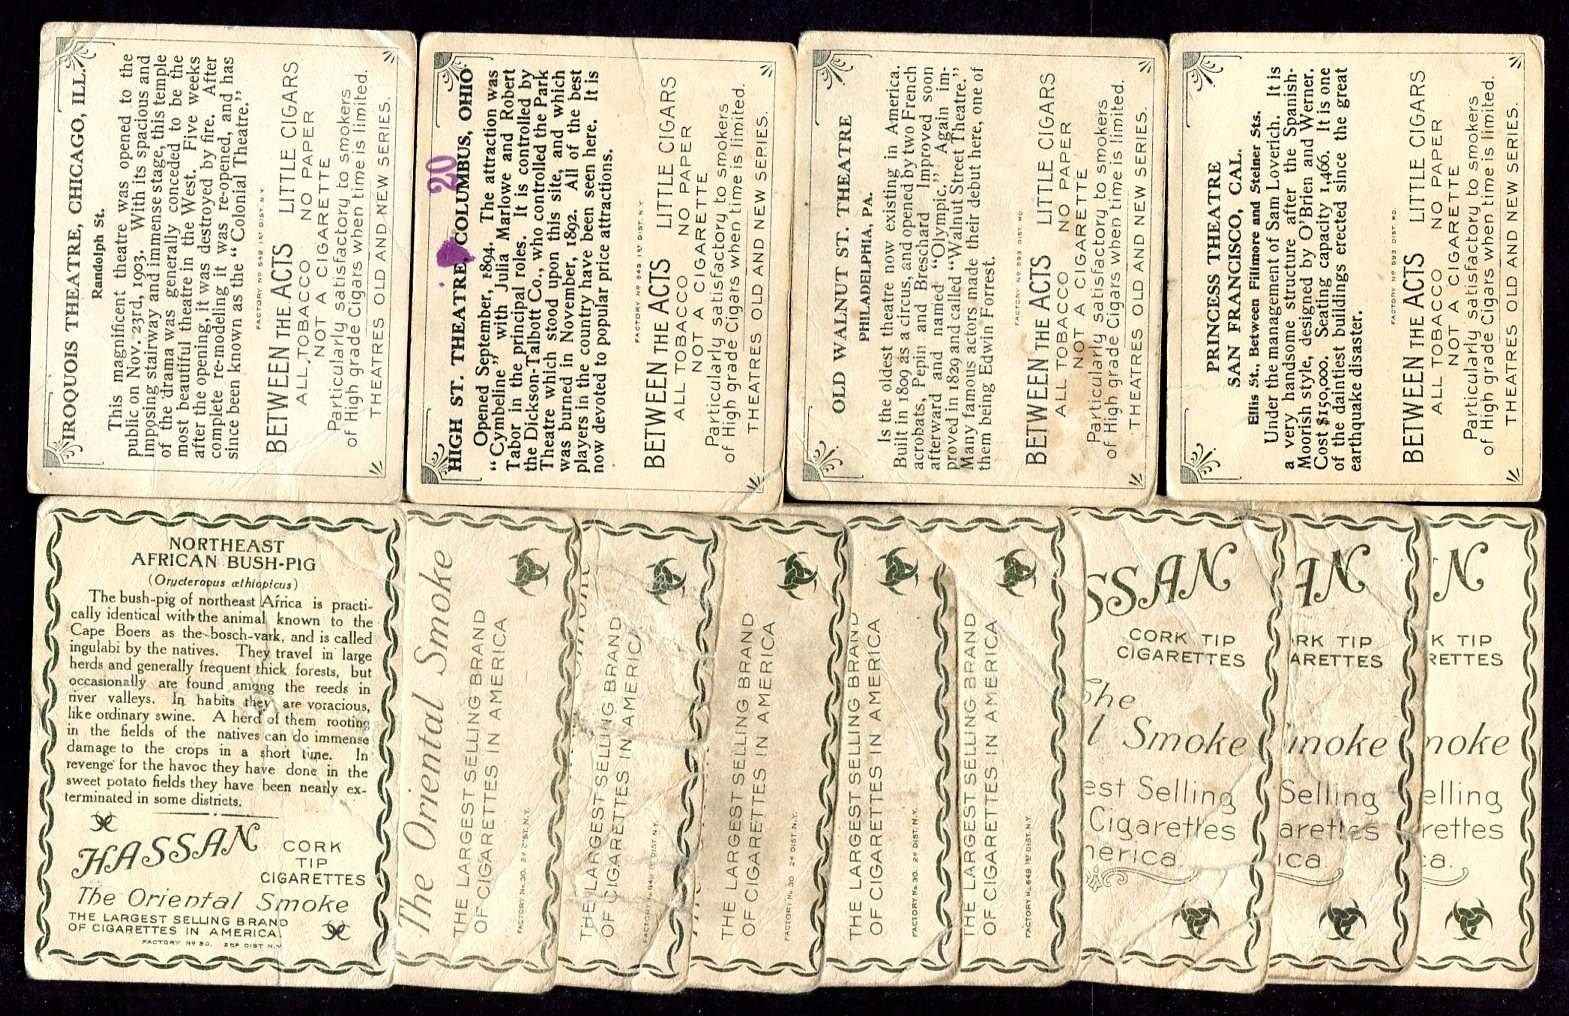 IROQUOIS THEATRE, CHICAGO, ILL.
Randolph St.
This magnificent theatre was opened to the
public on Nov. 23rd, 1903. With its spacious and
imposing stairway and immense stage, this temple
of the drama was generally conceded to be the
most beautiful theatre in the West. Five weeks
after the opening, it was destroyed by fire. After
complete re-modeling it was re-opened, and has
since been known as the "Colonial Theatre."
FACTORY Nº 649 1ST DIST. N.Y.
BETWEEN THE ACTS LITTLE CIGARS
ALL TOBACCO NO PAPER
NOT A CIGARETTE
Particularly satisfactory to smokers
of High grade Cigars when time is limited.
THEATRES OLD AND NEW SERIES.
20
HIGH ST. THEATRE, COLUMBUS, OHIO
Opened September, 1894. The attraction was
"Cymbeline" with Julia Marlowe and Robert
Tabor in the principal roles. It is controlled by
the Dickson-Talbott Co., who controlled the Park
Theatre which stood upon this site, and which
was burned in November, 1892. All of the best
players in the country have been seen here. It is
now devoted to popular price attractions.
FACTORY Nº 649 1ST DIST. N.Y.
BETWEEN THE ACTS LITTLE CIGARS
ALL TOBACCO NO PAPER
NOT A CIGARETTE
Particularly satisfactory to smokers
of High grade Cigars when time is limited.
THEATRES OLD AND NEW SERIES.
OLD WALNUT ST. THEATRE
PHILADELPHIA, PA.
Is the oldest theatre now existing in America.
Built in 1809 as a circus, and opened by two French
acrobats, Pepin and Breschard Improved soon
afterward and named "Olympic." Again im-
proved in 1829 and called "Walnut Street Theatre."
Many famous actors made their debut here, one of
them being Edwin Forrest.
FACTORY Nº 593 DIST. MD.
BETWEEN THE ACTS LITTLE CIGARS
ALL TOBACCO NO PAPER
NOT A CIGARETTE
Particularly satisfactory to smokers
of High grade Cigars when time is limited.
THEATRES OLD AND NEW SERIES.
PRINCESS THEATRE
SAN FRANCISCO, CAL.
Ellis St., Between Fillmore and Steiner Sts.
Under the management of Sam Loverich. It is
a very handsome structure after the Spanish-
Moorish style, designed by O'Brien and Werner.
Cost $150,000. Seating capacity 1,466. It is one
of the daintiest buildings erected since the great
earthquake disaster.
FACTORY Nº 593 DIST. MD.
BETWEEN THE ACTS LITTLE CIGARS
ALL TOBACCO NO PAPER
NOT A CIGARETTE
Particularly satisfactory to smokers
of High grade Cigars when time is limited.
THEATRES OLD AND NEW SERIES.
NORTHEAST
AFRICAN BUSH-PIG
(Orycteropus æthiopicus)
The bush-pig of northeast Africa is practi-
cally identical with the animal known to the
Cape Boers as the bosch-vark, and is called
ingulabi by the natives. They travel in large
herds and generally frequent thick forests, but
occasionally are found among the reeds in
river valleys. In habits they are voracious,
like ordinary swine. A herd of them rooting
in the fields of the natives can do immense
damage to the crops in a short time. In
revenge for the havoc they have done in the
sweet potato fields they have been nearly ex-
terminated in some districts.
HASSAN CORK
TIP
CIGARETTES
The Oriental Smoke
THE LARGEST SELLING BRAND
OF CIGARETTES IN AMERICA
FACTORY Nº 30. 2ND DIST N.Y.
The Oriental Smoke
THE LARGEST SELLING BRAND
OF CIGARETTES IN AMERICA
FACTORY No. 30. 2D DIST. N.Y.
THE LARGEST SELLING BRAND
OF CIGARETTES IN AMERICA
FACTORY No 649 1ST DIST. N.Y.
THE LARGEST SELLING BRAND
OF CIGARETTES IN AMERICA
FACTORY No. 30 2D DIST. N.Y.
THE LARGEST SELLING BRAND
OF CIGARETTES IN AMERICA
FACTORY No. 30. 2D DIST. N.Y.
THE LARGEST SELLING BRAND
OF CIGARETTES IN AMERICA
FACTORY No. 649 1ST DIST. N.Y.
SSAN
CORK TIP
CIGARETTES
The
l Smoke
est Selling
Cigarettes
merica.
AN
RK TIP
ARETTES
moke
Selling
arettes
ica.
N
K TIP
RETTES
moke
elling
rettes
ca.